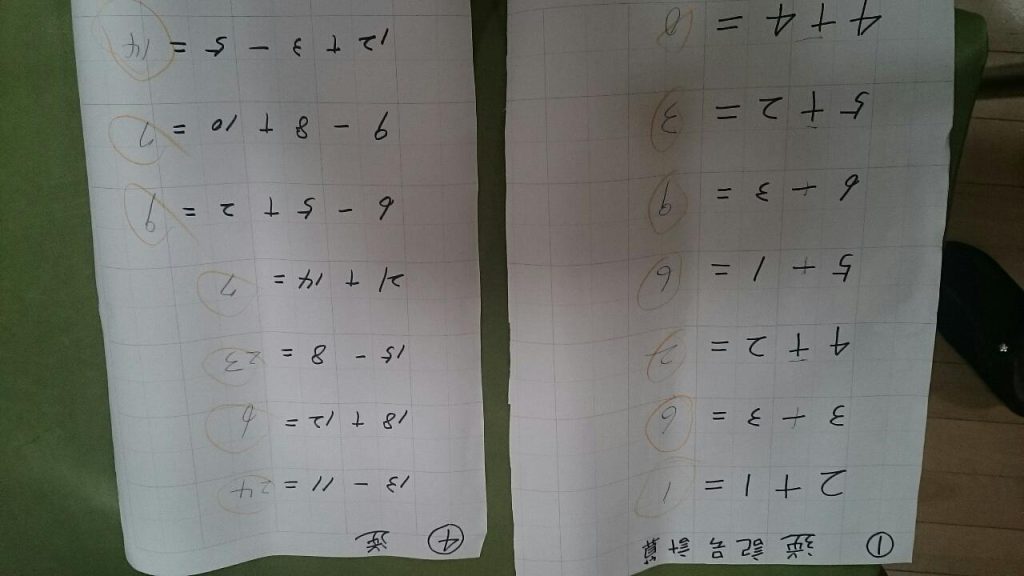 ① 逆記号計算
2 + 1 = 1
3 + 3 = 6
4 + 2 = 2
5 + 1 = 6
6 + 3 = 9
5 + 2 = 3
4 + 4 =
④ 逆
13 - 11 = 24
18 + 12 = 6
15 - 8 = 23
21 + 14 = 7
6 - 5 + 2 = 9
9 - 8 + 10 = 7
12 + 3 - 5 = 14